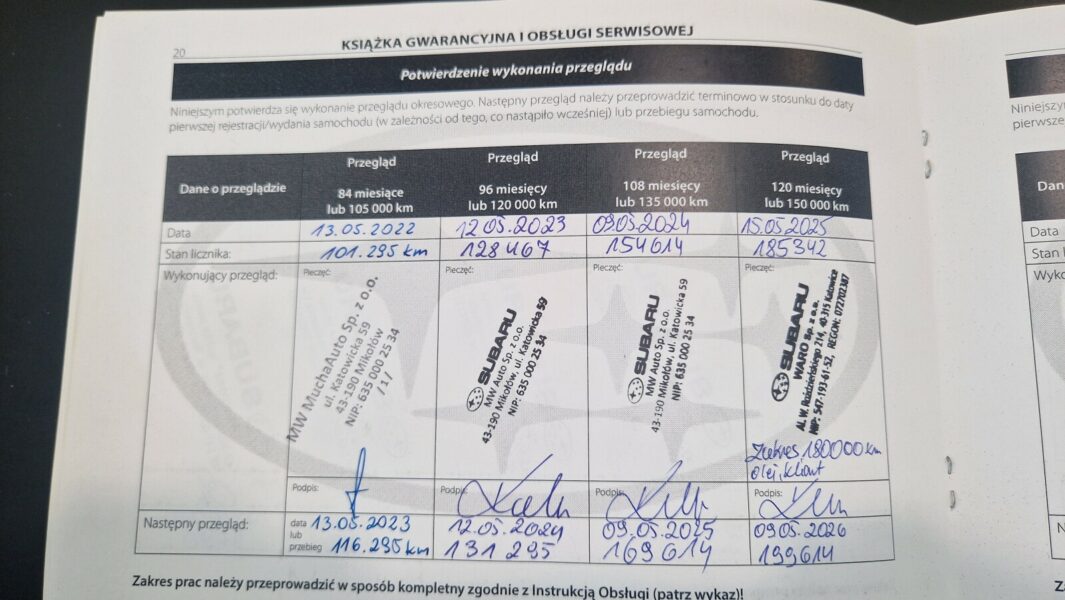 20
KSIĄŻKA GWARANCYJNA I OBSŁUGI SERWISOWEJ
Potwierdzenie wykonania przeglądu
Niniejszym potwierdza się wykonanie przeglądu okresowego. Następny przegląd należy przeprowadzić terminowo w stosunku do daty
pierwszej rejestracji/wydania samochodu (w zależności od tego, co nastąpiło wcześniej) lub przebiegu samochodu.
Dane o przeglądzie
Przegląd
84 miesiące
lub 105 000 km
Przegląd
96 miesięcy
lub 120 000 km
Przegląd
108 miesięcy
lub 135 000 km
Przegląd
120 miesięcy
lub 150 000 km
Data 13.05.2022 12.05.2023 09.05.2024 15.05.2025
Stan licznika: 101.295 km 128467 154614 185342
Wykonujący przegląd:
Pieczęć:
MW MuchaAuto Sp. z o.o.
ul. Katowicka 59
43-190 Mikołów
NIP: 635 000 25 34
/1/
Pieczęć:
SUBARU
MW Auto Sp. z o.o.
43-190 Mikołów, ul. Katowicka 59
NIP: 635 000 25 34
Pieczęć:
SUBARU
MW Auto Sp. z o.o.
43-190 Mikołów, ul. Katowicka 59
NIP: 635 000 25 34
Pieczęć:
SUBARU
WARO Sp. z o.o.
Al. W. Roździeńskiego 214, 40-315 Katowice
NIP: 547-193-61-52, REGON: 072702387
Zakres 180000 km
olej, klient
Podpis: Podpis: Podpis: Podpis:
Następny przegląd:
data 13.05.2023 12.05.2024 09.05.2025 09.05.2026
lub
przebieg 116.295 km 131 295 169614 199614
Zakres prac należy przeprowadzić w sposób kompletny zgodnie z Instrukcją Obsługi (patrz wykaz)!
Niniejszy
pierwsze
Dan
Data
Stan
Wyko
N
Z